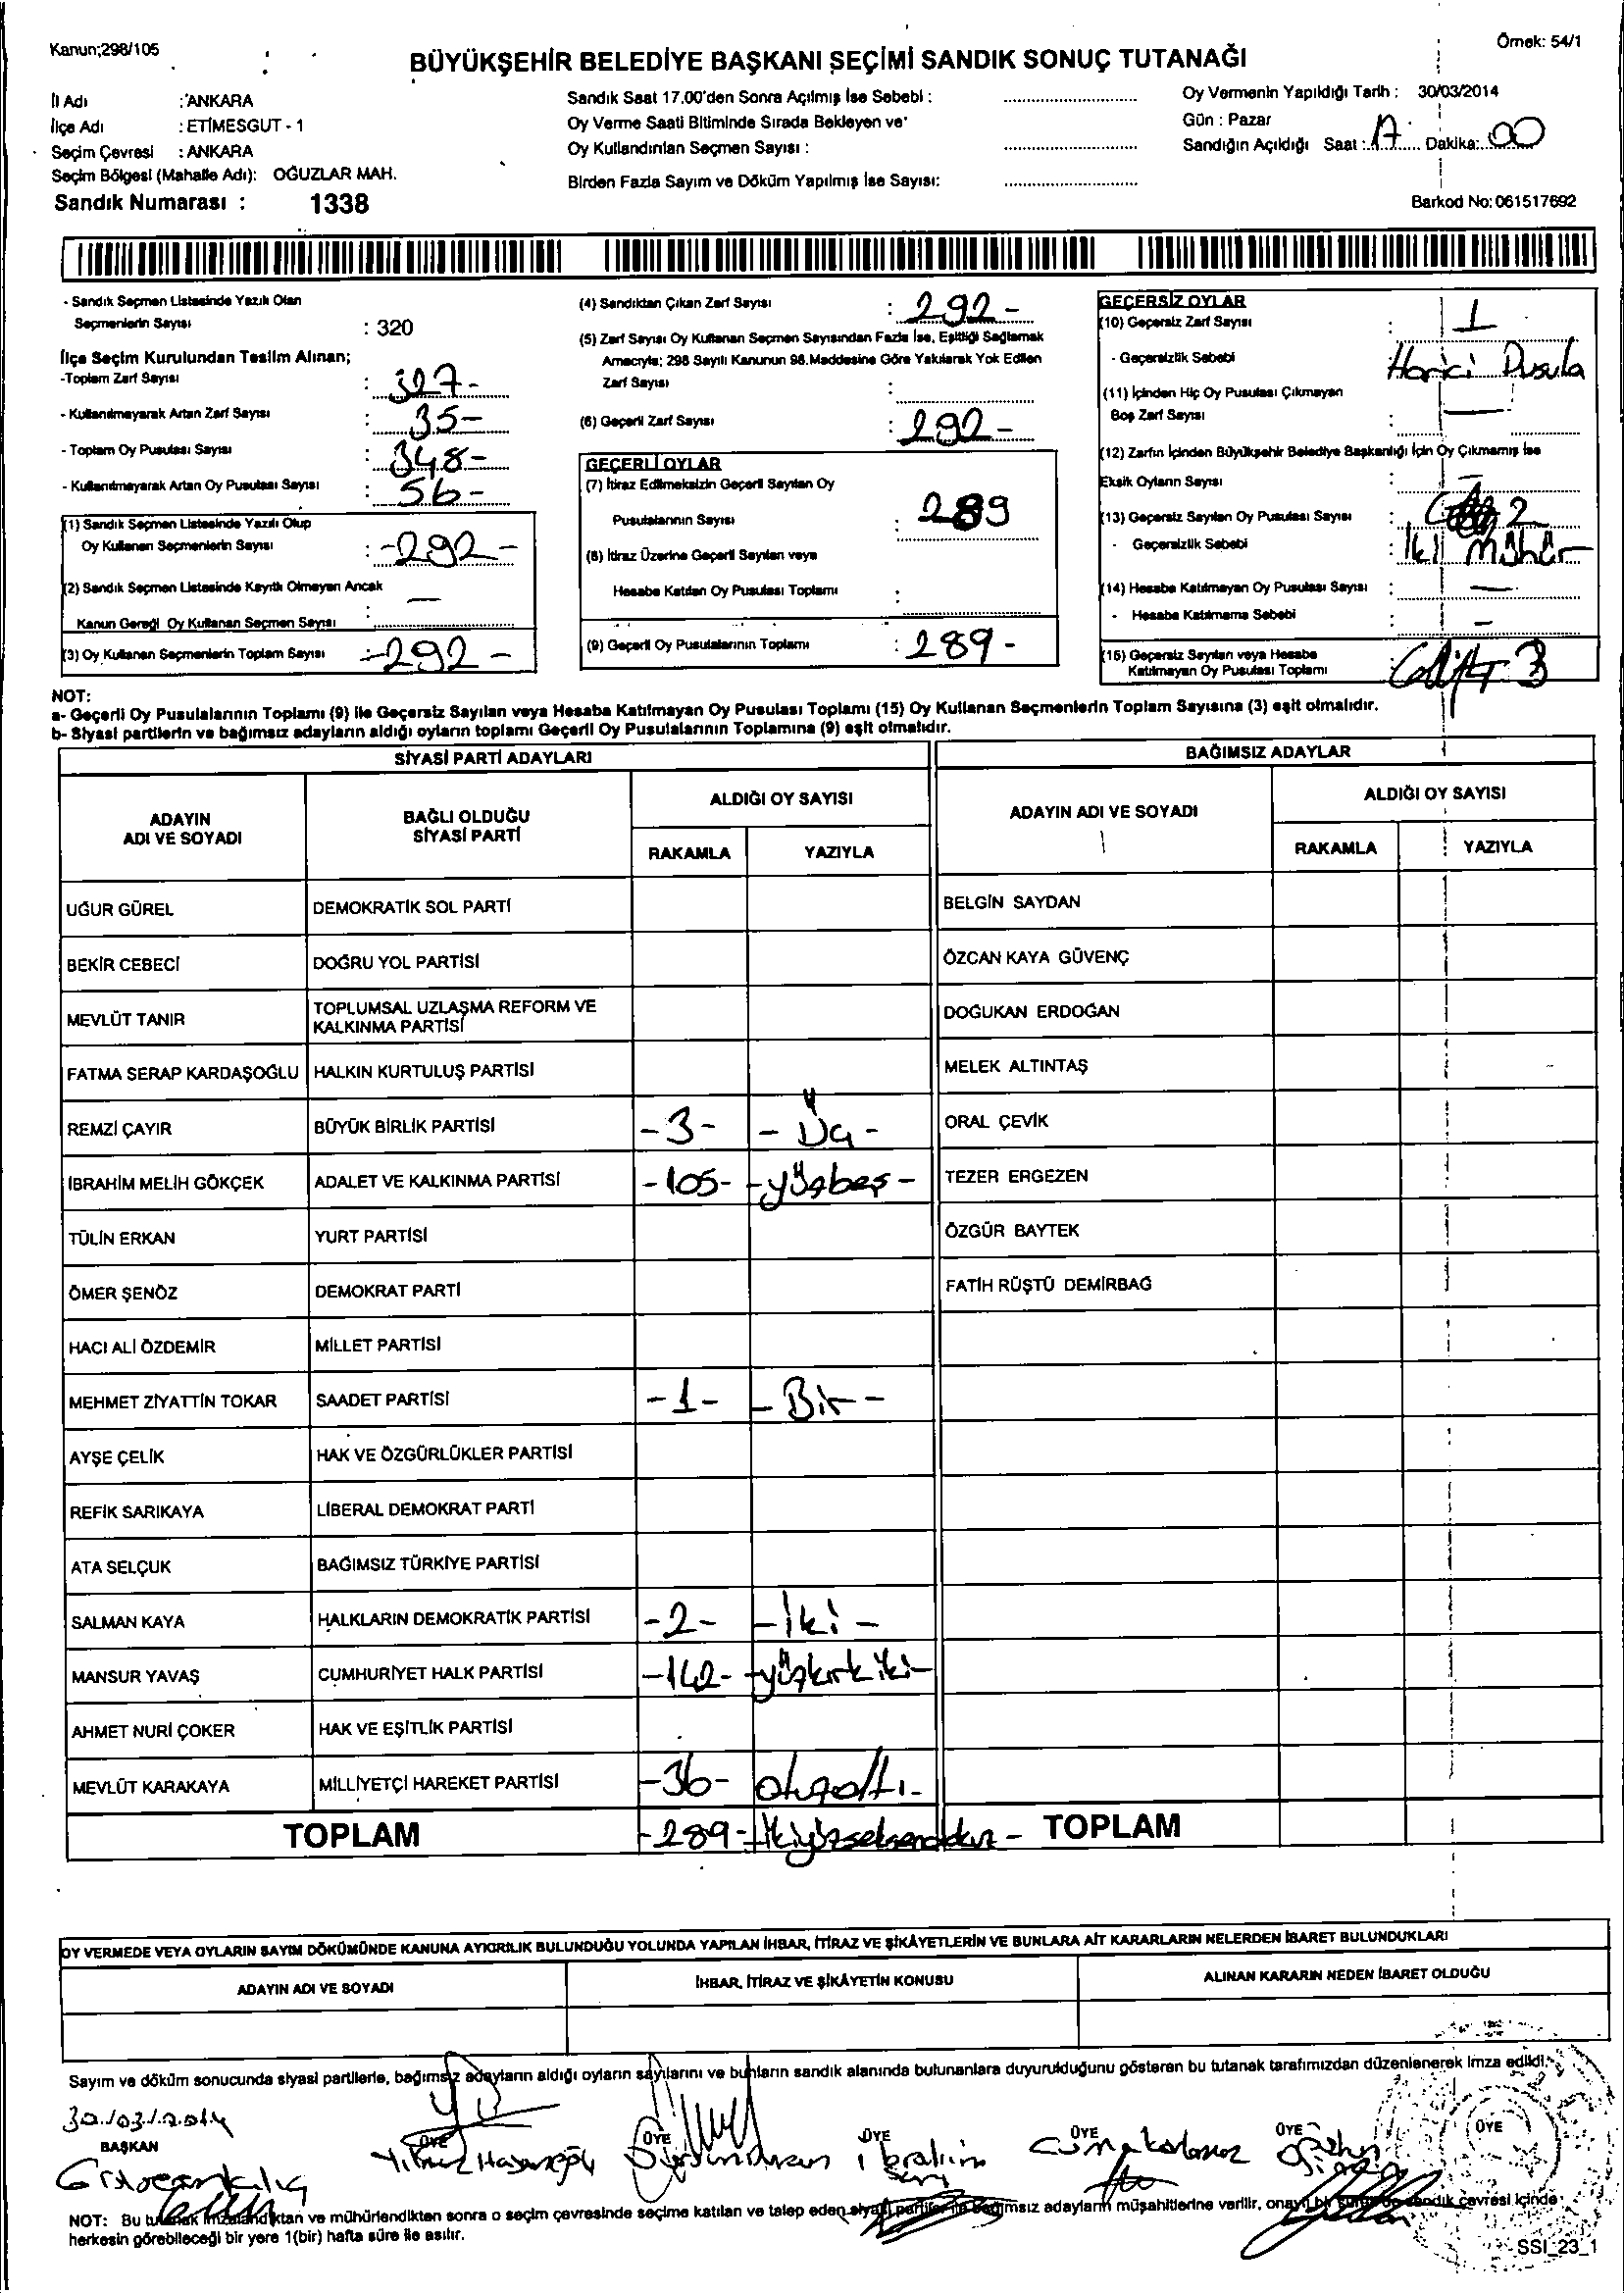 Kanun;298/105
Örnek: 54/1
BÜYÜKŞEHİR BELEDİYE BAŞKANI SEÇİMİ SANDIK SONUÇ TUTANAĞI
İl Adı : ANKARA
İlçe Adı : ETİMESGUT - 1
Seçim Çevresi : ANKARA
Seçim Bölgesi (Mahalle Adı): OĞUZLAR MAH.
Sandık Numarası : 1338
Sandık Saat 17.00'den Sonra Açılmış İse Sebebi :
Oy Verme Saati Bitiminde Sırada Bekleyen ve
Oy Kullandırılan Seçmen Sayısı :
Birden Fazla Sayım ve Döküm Yapılmış İse Sayısı:
Oy Vermenin Yapıldığı Tarih : 30/03/2014
Gün : Pazar
Sandığın Açıldığı Saat : 17 Dakika: 00
Barkod No: 061517692
- Sandık Seçmen Listesinde Yazılı Olan
Seçmenlerin Sayısı : 320
İlçe Seçim Kurulundan Teslim Alınan;
-Toplam Zarf Sayısı : 327-
- Kullanılmayarak Artan Zarf Sayısı : 35-
- Toplam Oy Pusulası Sayısı : 348-
- Kullanılmayarak Artan Oy Pusulası Sayısı : 56-
(1) Sandık Seçmen Listesinde Yazılı Olup
Oy Kullanan Seçmenlerin Sayısı : -292-
(2) Sandık Seçmen Listesinde Kayıtlı Olmayan Ancak
Kanun Gereği Oy Kullanan Seçmen Sayısı : —
(3) Oy Kullanan Seçmenlerin Toplam Sayısı : -292-
(4) Sandıktan Çıkan Zarf Sayısı : 292-
(5) Zarf Sayısı Oy Kullanan Seçmen Sayısından Fazla İse, Eşitliği Sağlamak
Amacıyla; 298 Sayılı Kanunun 98.Maddesine Göre Yakılarak Yok Edilen
Zarf Sayısı :
(6) Geçerli Zarf Sayısı : 292-
GEÇERLİ OYLAR
(7) İtiraz Edilmeksizin Geçerli Sayılan Oy
Pusulalarının Sayısı : 289
(8) İtiraz Üzerine Geçerli Sayılan veya
Hesaba Katılan Oy Pusulası Toplamı :
(9) Geçerli Oy Pusulalarının Toplamı : 289-
GEÇERSİZ OYLAR
(10) Geçersiz Zarf Sayısı : 1
- Geçersizlik Sebebi : Harici Pusula
(11) İçinden Hiç Oy Pusulası Çıkmayan
Boş Zarf Sayısı : —
(12) Zarfın İçinden Büyükşehir Belediye Başkanlığı İçin Oy Çıkmamış İse
Eksik Oyların Sayısı : —
(13) Geçersiz Sayılan Oy Pusulası Sayısı : 2
- Geçersizlik Sebebi : İki mühür
(14) Hesaba Katılmayan Oy Pusulası Sayısı : —
- Hesaba Katılmama Sebebi : —
(15) Geçersiz Sayılan veya Hesaba
Katılmayan Oy Pusulası Toplamı : 3
NOT:
a- Geçerli Oy Pusulalarının Toplamı (9) ile Geçersiz Sayılan veya Hesaba Katılmayan Oy Pusulası Toplamı (15) Oy Kullanan Seçmenlerin Toplam Sayısına (3) eşit olmalıdır.
b- Siyasi partilerin ve bağımsız adayların aldığı oyların toplamı Geçerli Oy Pusulalarının Toplamına (9) eşit olmalıdır.
SİYASİ PARTİ ADAYLARI BAĞIMSIZ ADAYLAR
ADAYIN ADI VE SOYADI BAĞLI OLDUĞU SİYASİ PARTİ ALDIĞI OY SAYISI ADAYIN ADI VE SOYADI ALDIĞI OY SAYISI
RAKAMLA YAZIYLA RAKAMLA YAZIYLA
UĞUR GÜREL DEMOKRATİK SOL PARTİ BELGİN SAYDAN
BEKİR CEBECİ DOĞRU YOL PARTİSİ ÖZCAN KAYA GÜVENÇ
MEVLÜT TANIR TOPLUMSAL UZLAŞMA REFORM VE KALKINMA PARTİSİ DOĞUKAN ERDOĞAN
FATMA SERAP KARDAŞOĞLU HALKIN KURTULUŞ PARTİSİ MELEK ALTINTAŞ
REMZİ ÇAYIR BÜYÜK BİRLİK PARTİSİ -3- - Üç - ORAL ÇEVİK
İBRAHİM MELİH GÖKÇEK ADALET VE KALKINMA PARTİSİ -105- -yüzbeş- TEZER ERGEZEN
TÜLİN ERKAN YURT PARTİSİ ÖZGÜR BAYTEK
ÖMER ŞENÖZ DEMOKRAT PARTİ FATİH RÜŞTÜ DEMİRBAĞ
HACI ALİ ÖZDEMİR MİLLET PARTİSİ
MEHMET ZİYATTİN TOKAR SAADET PARTİSİ -1- - Bir -
AYŞE ÇELİK HAK VE ÖZGÜRLÜKLER PARTİSİ
REFİK SARIKAYA LİBERAL DEMOKRAT PARTİ
ATA SELÇUK BAĞIMSIZ TÜRKİYE PARTİSİ
SALMAN KAYA HALKLARIN DEMOKRATİK PARTİSİ -2- -iki-
MANSUR YAVAŞ CUMHURİYET HALK PARTİSİ -142- -yüzkırkiki-
AHMET NURİ ÇOKER HAK VE EŞİTLİK PARTİSİ
MEVLÜT KARAKAYA MİLLİYETÇİ HAREKET PARTİSİ -36- otuzaltı-
TOPLAM -289- ikiyüzseksendokuz- TOPLAM
OY VERMEDE VEYA OYLARIN SAYIM DÖKÜMÜNDE KANUNA AYKIRILIK BULUNDUĞU YOLUNDA YAPILAN İHBAR, İTİRAZ VE ŞİKÂYETLERİN VE BUNLARA AİT KARARLARIN NELERDEN İBARET BULUNDUKLARI
ADAYIN ADI VE SOYADI İHBAR, İTİRAZ VE ŞİKÂYETİN KONUSU ALINAN KARARIN NEDEN İBARET OLDUĞU
Sayım ve döküm sonucunda siyasi partilerle, bağımsız adayların aldığı oyların sayılarını ve bunların sandık alanında bulunanlara duyurulduğunu gösteren bu tutanak tarafımızdan düzenlenerek imza edildi.
30/03/2014
BAŞKAN ÜYE ÜYE ÜYE ÜYE ÜYE ÜYE
Yılmaz İbrahim
NOT: Bu tutanak imzalandıktan ve mühürlendikten sonra o seçim çevresinde seçime katılan ve talep eden siyasi partiler ile bağımsız adayların müşahitlerine verilir, onaylı bir sureti de sandık çevresi içinde
herkesin görebileceği bir yere 1(bir) hafta süre ile asılır.
SSI_23_1